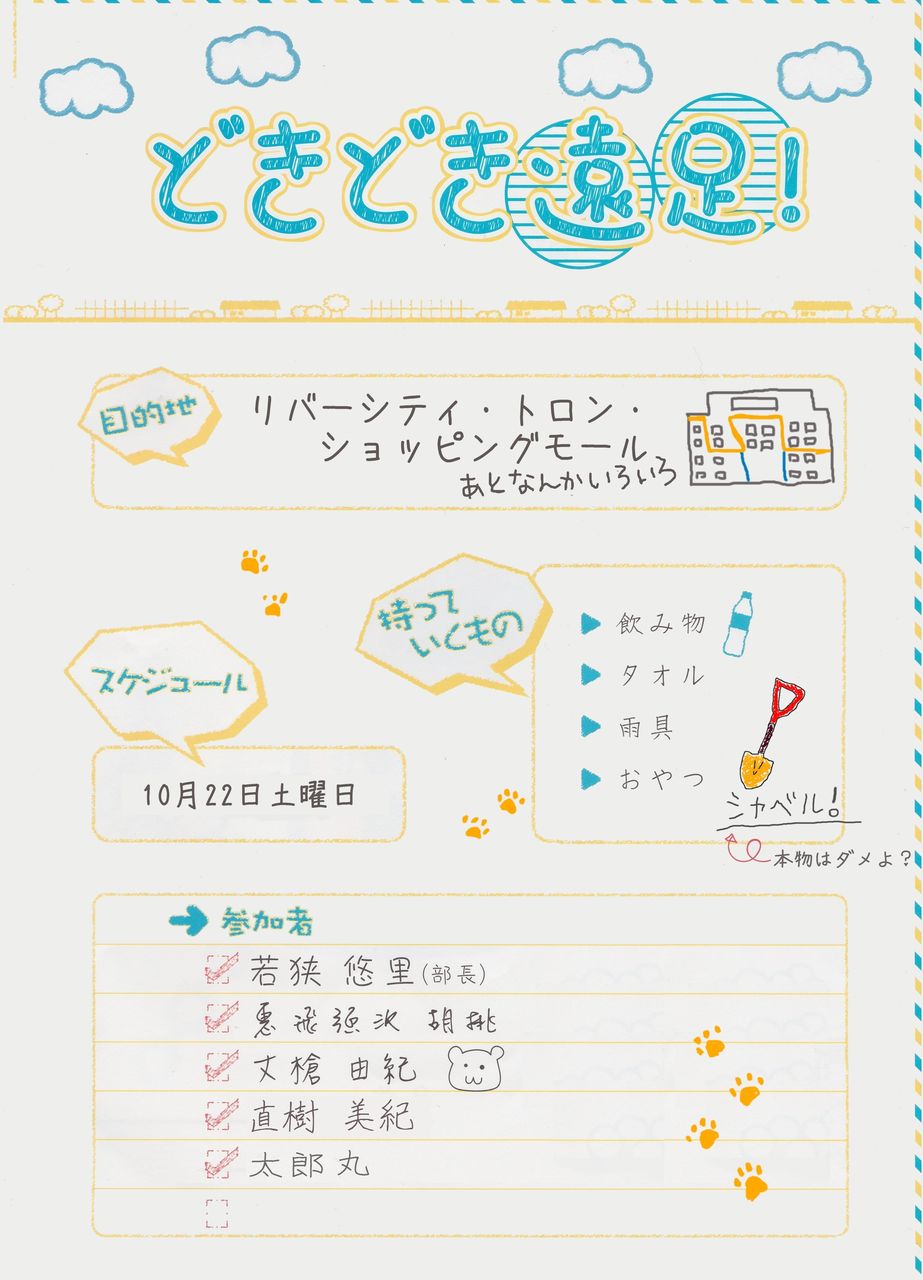 どきどき遠足!
目的地
リバーシティ・トロン・
ショッピングモール
あとなんかいろいろ
持って
いくもの
飲み物
タオル
雨具
おやつ
シャベル!
本物はダメよ?
スケジュール
10月22日土曜日
参加者
若狭 悠里(部長)
恵飛須沢 胡桃
丈槍 由紀
直樹 美紀
太郎丸